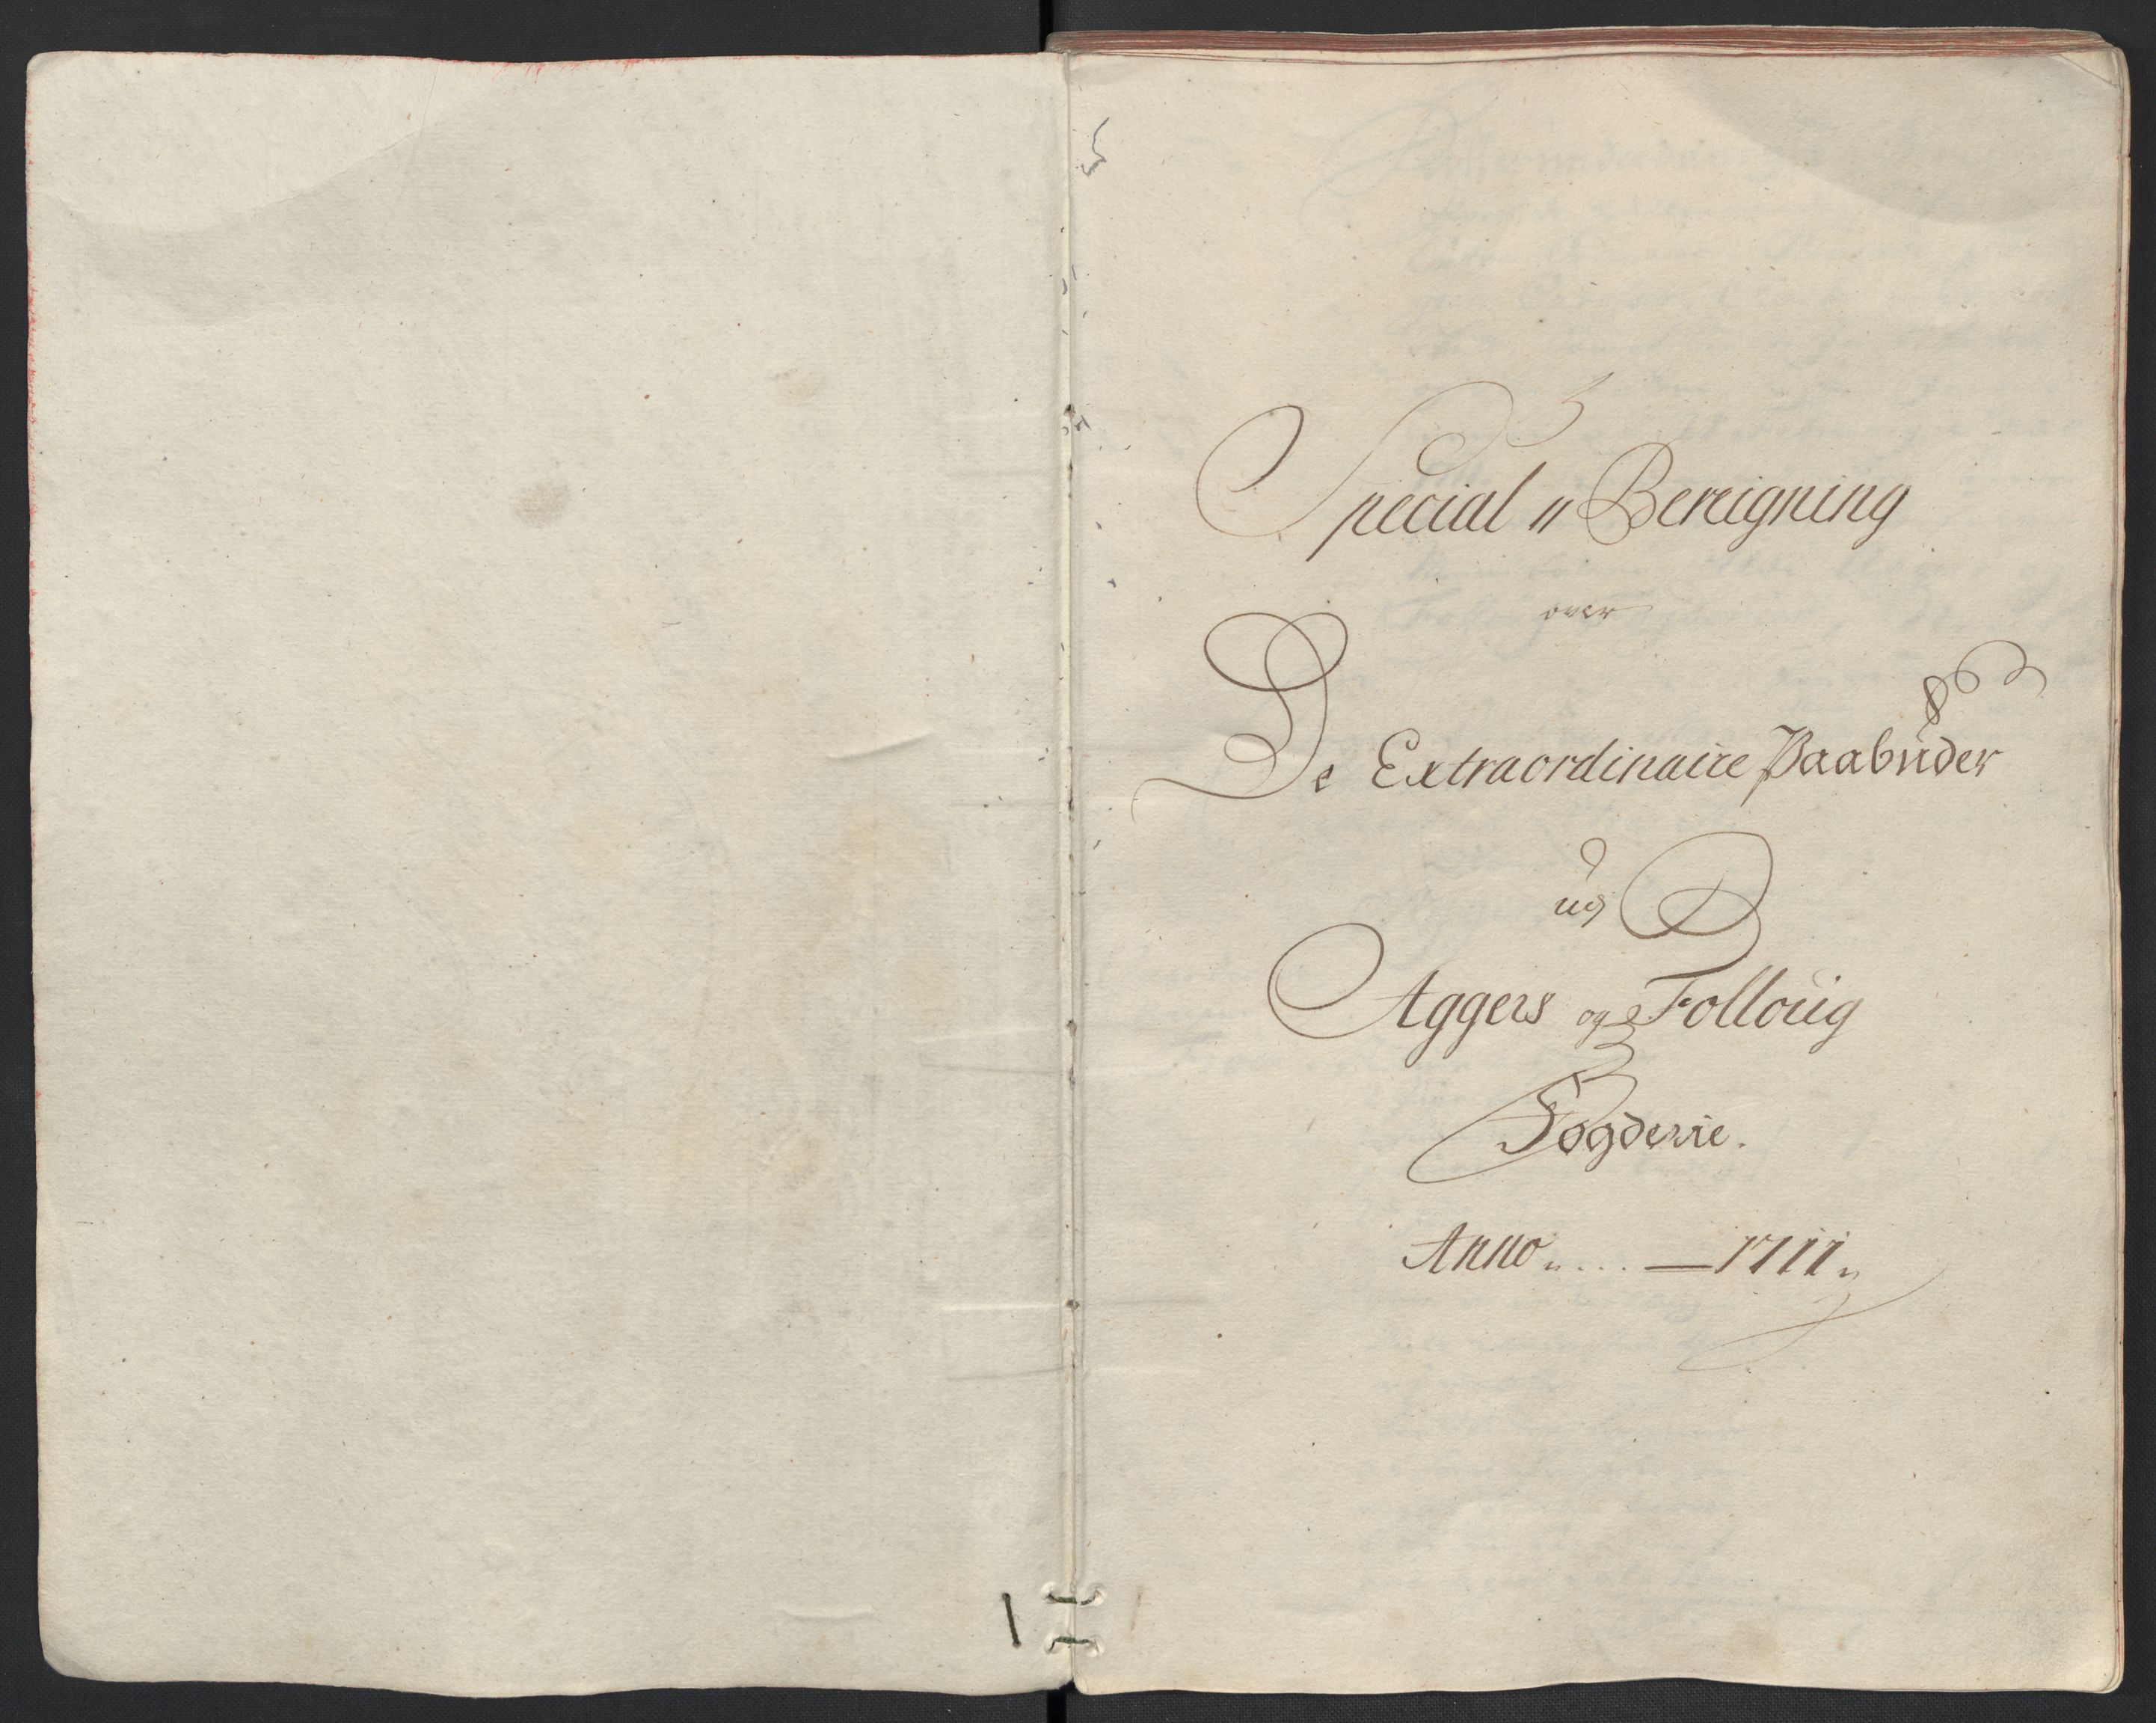 Special〃Bereigning
over
De Extraordinaire Paabuder
udj
Aggers og Folloüg
Fogderie.
Anno 〃 . . . — 1711 〃